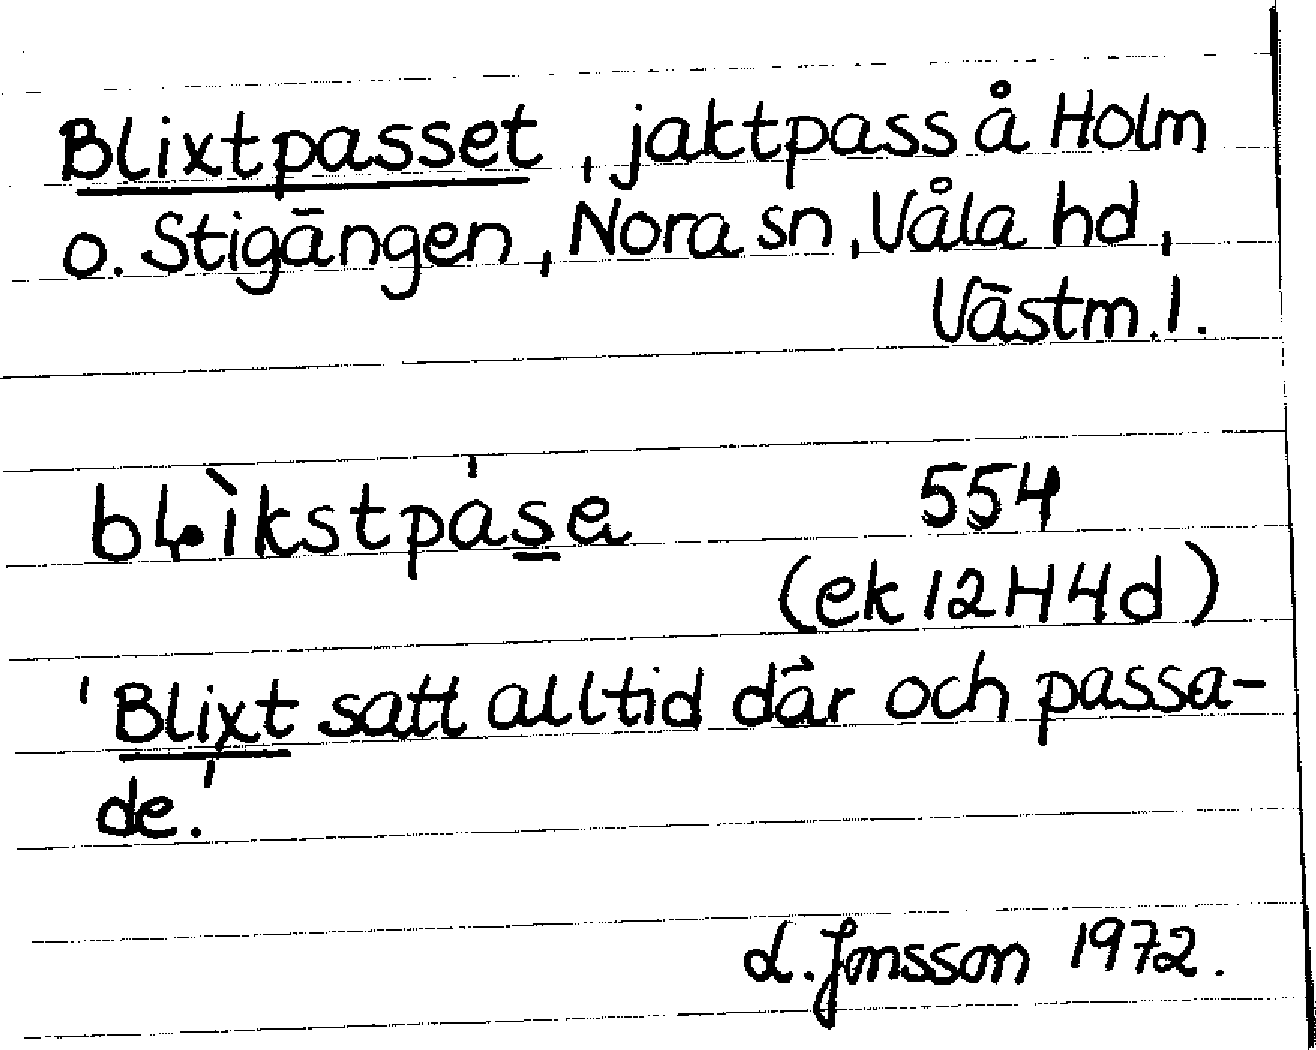 Blixtpasset, jaktpass å Holm
o. Stigången, Nora sn, Våla hd,
Västm. l.
blìkstpasa 554
(ek 12H4d)
'Blixt satt alltid där och passa-
de.'
L. Jonsson 1972.